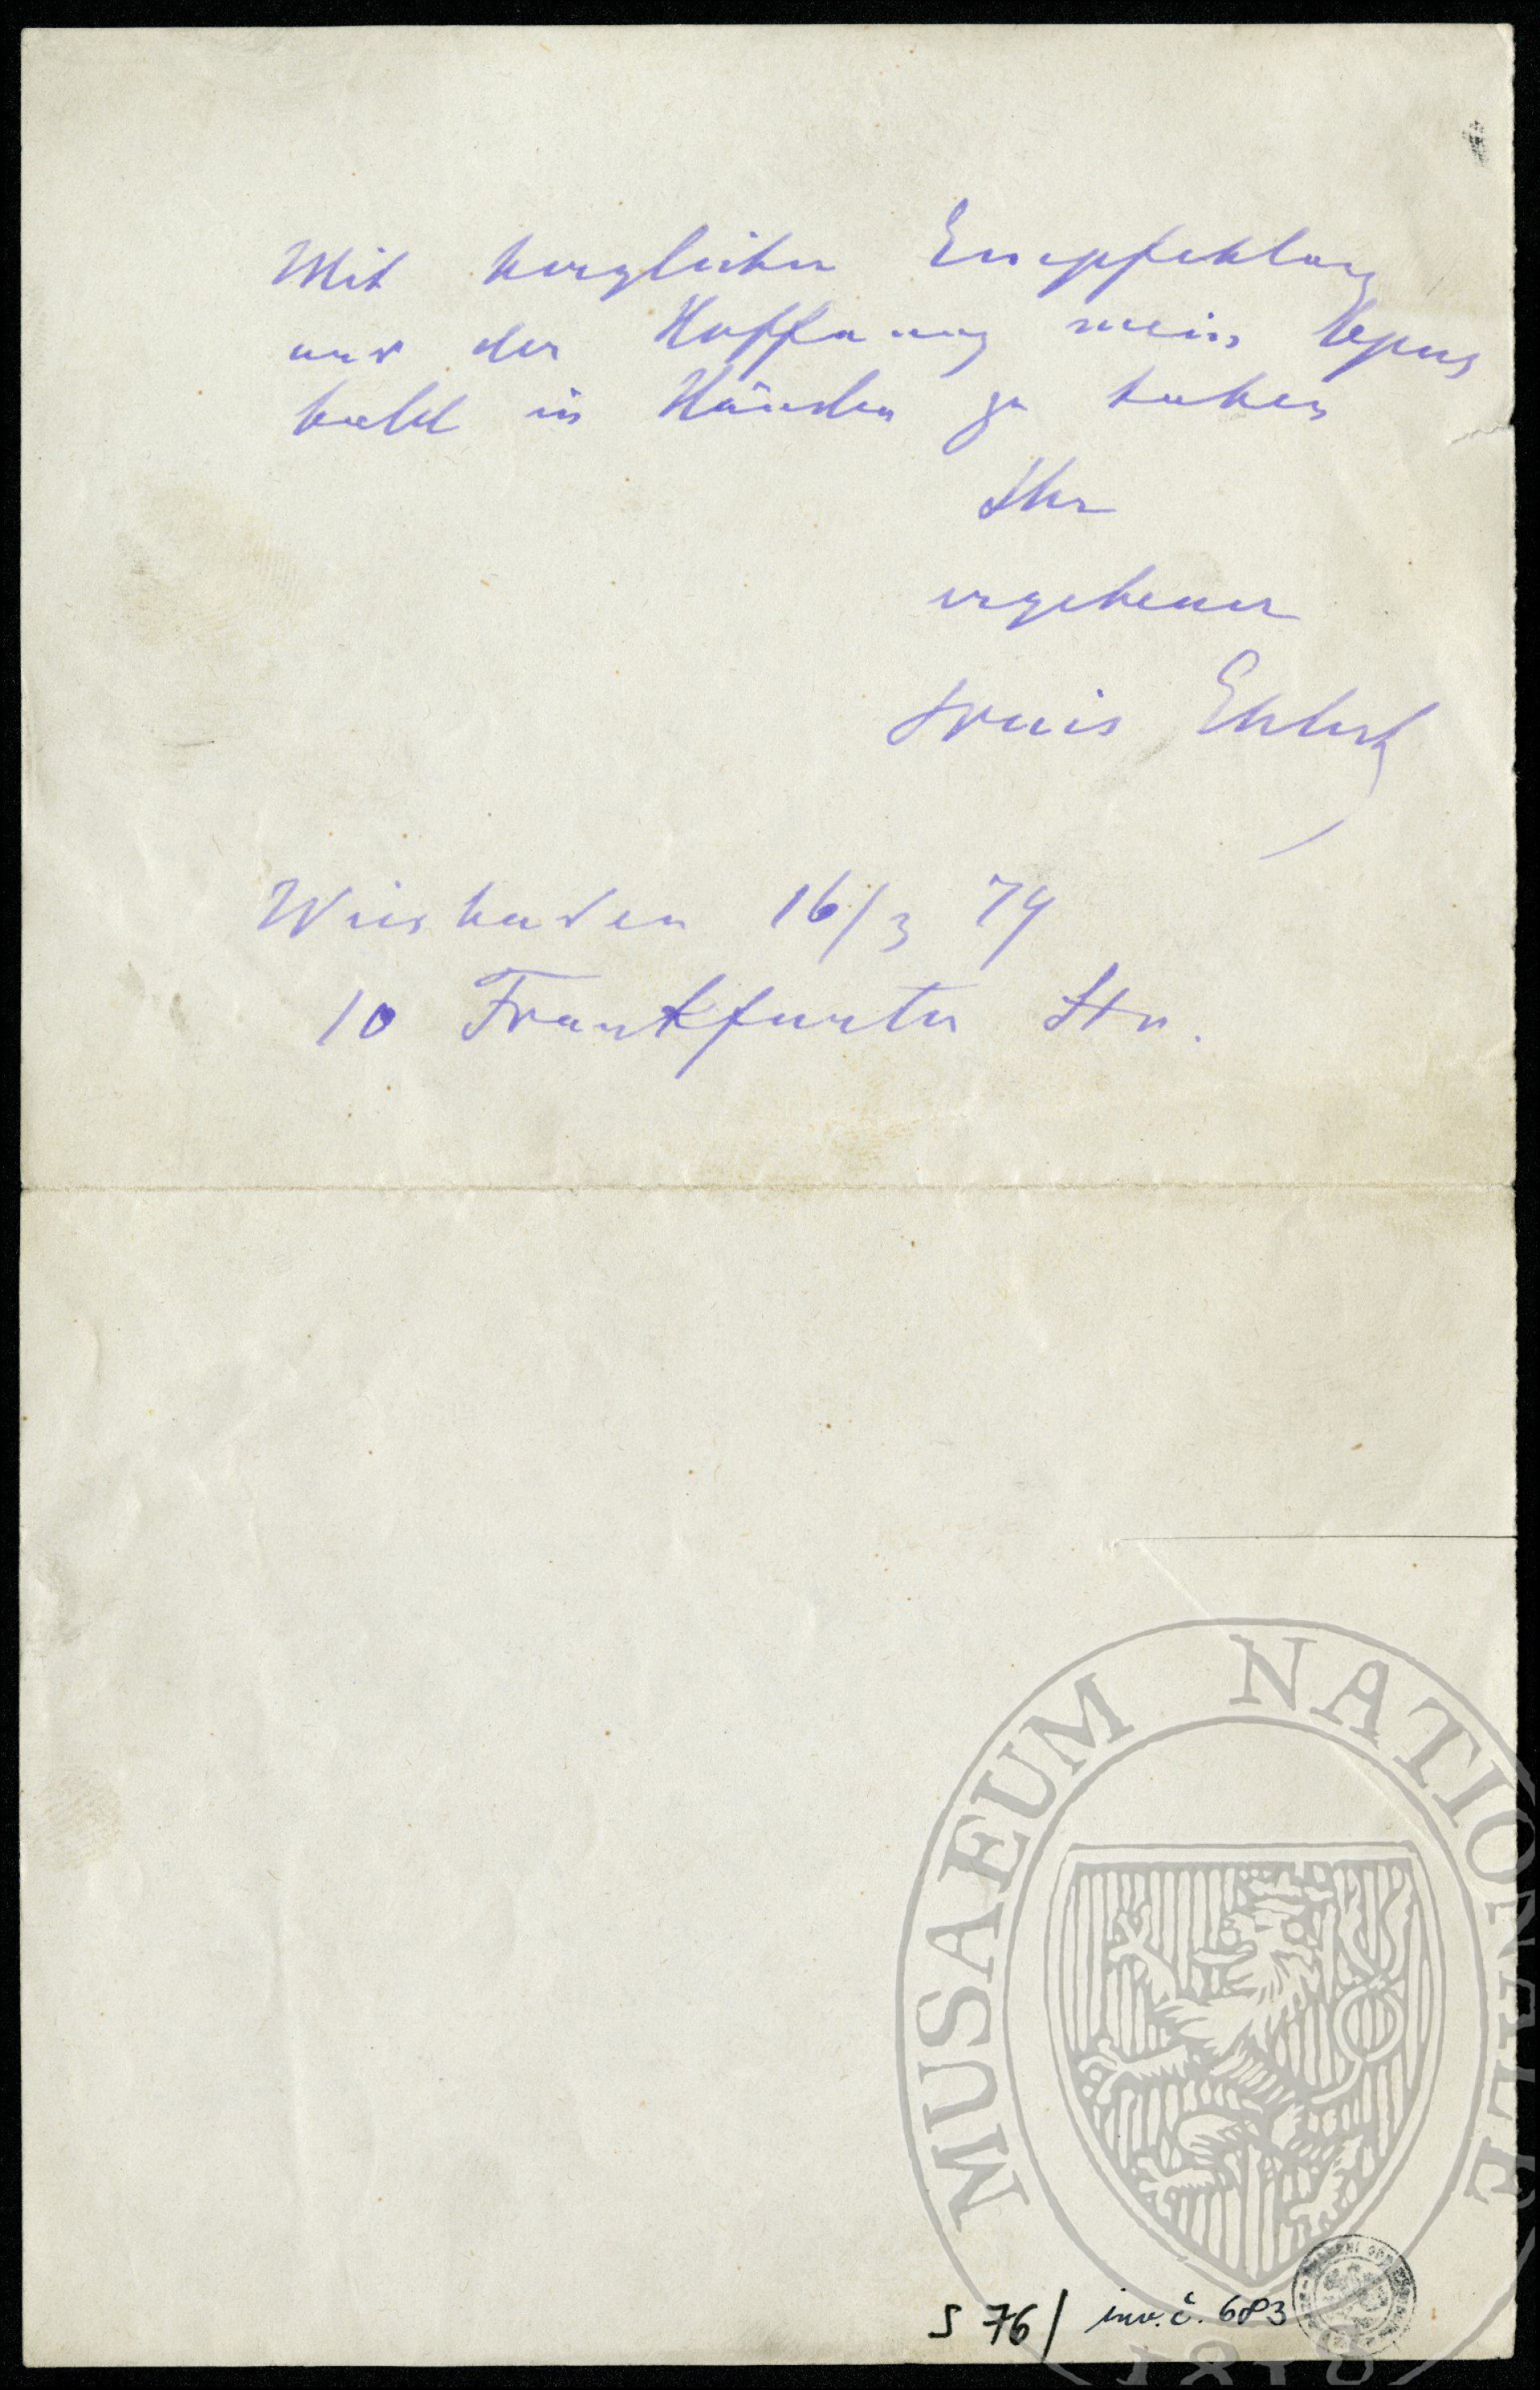 Mit herzlicher Empfehlung
und der Hoffnung mein Opus
bald in Händen zu haben
Ihr
ergebener
Louis Ehlert
Wiesbaden 16/3 79
10 Frankfurter Str.
MUSAEUM NATIONALE
S 76/ inv. č. 683
1818